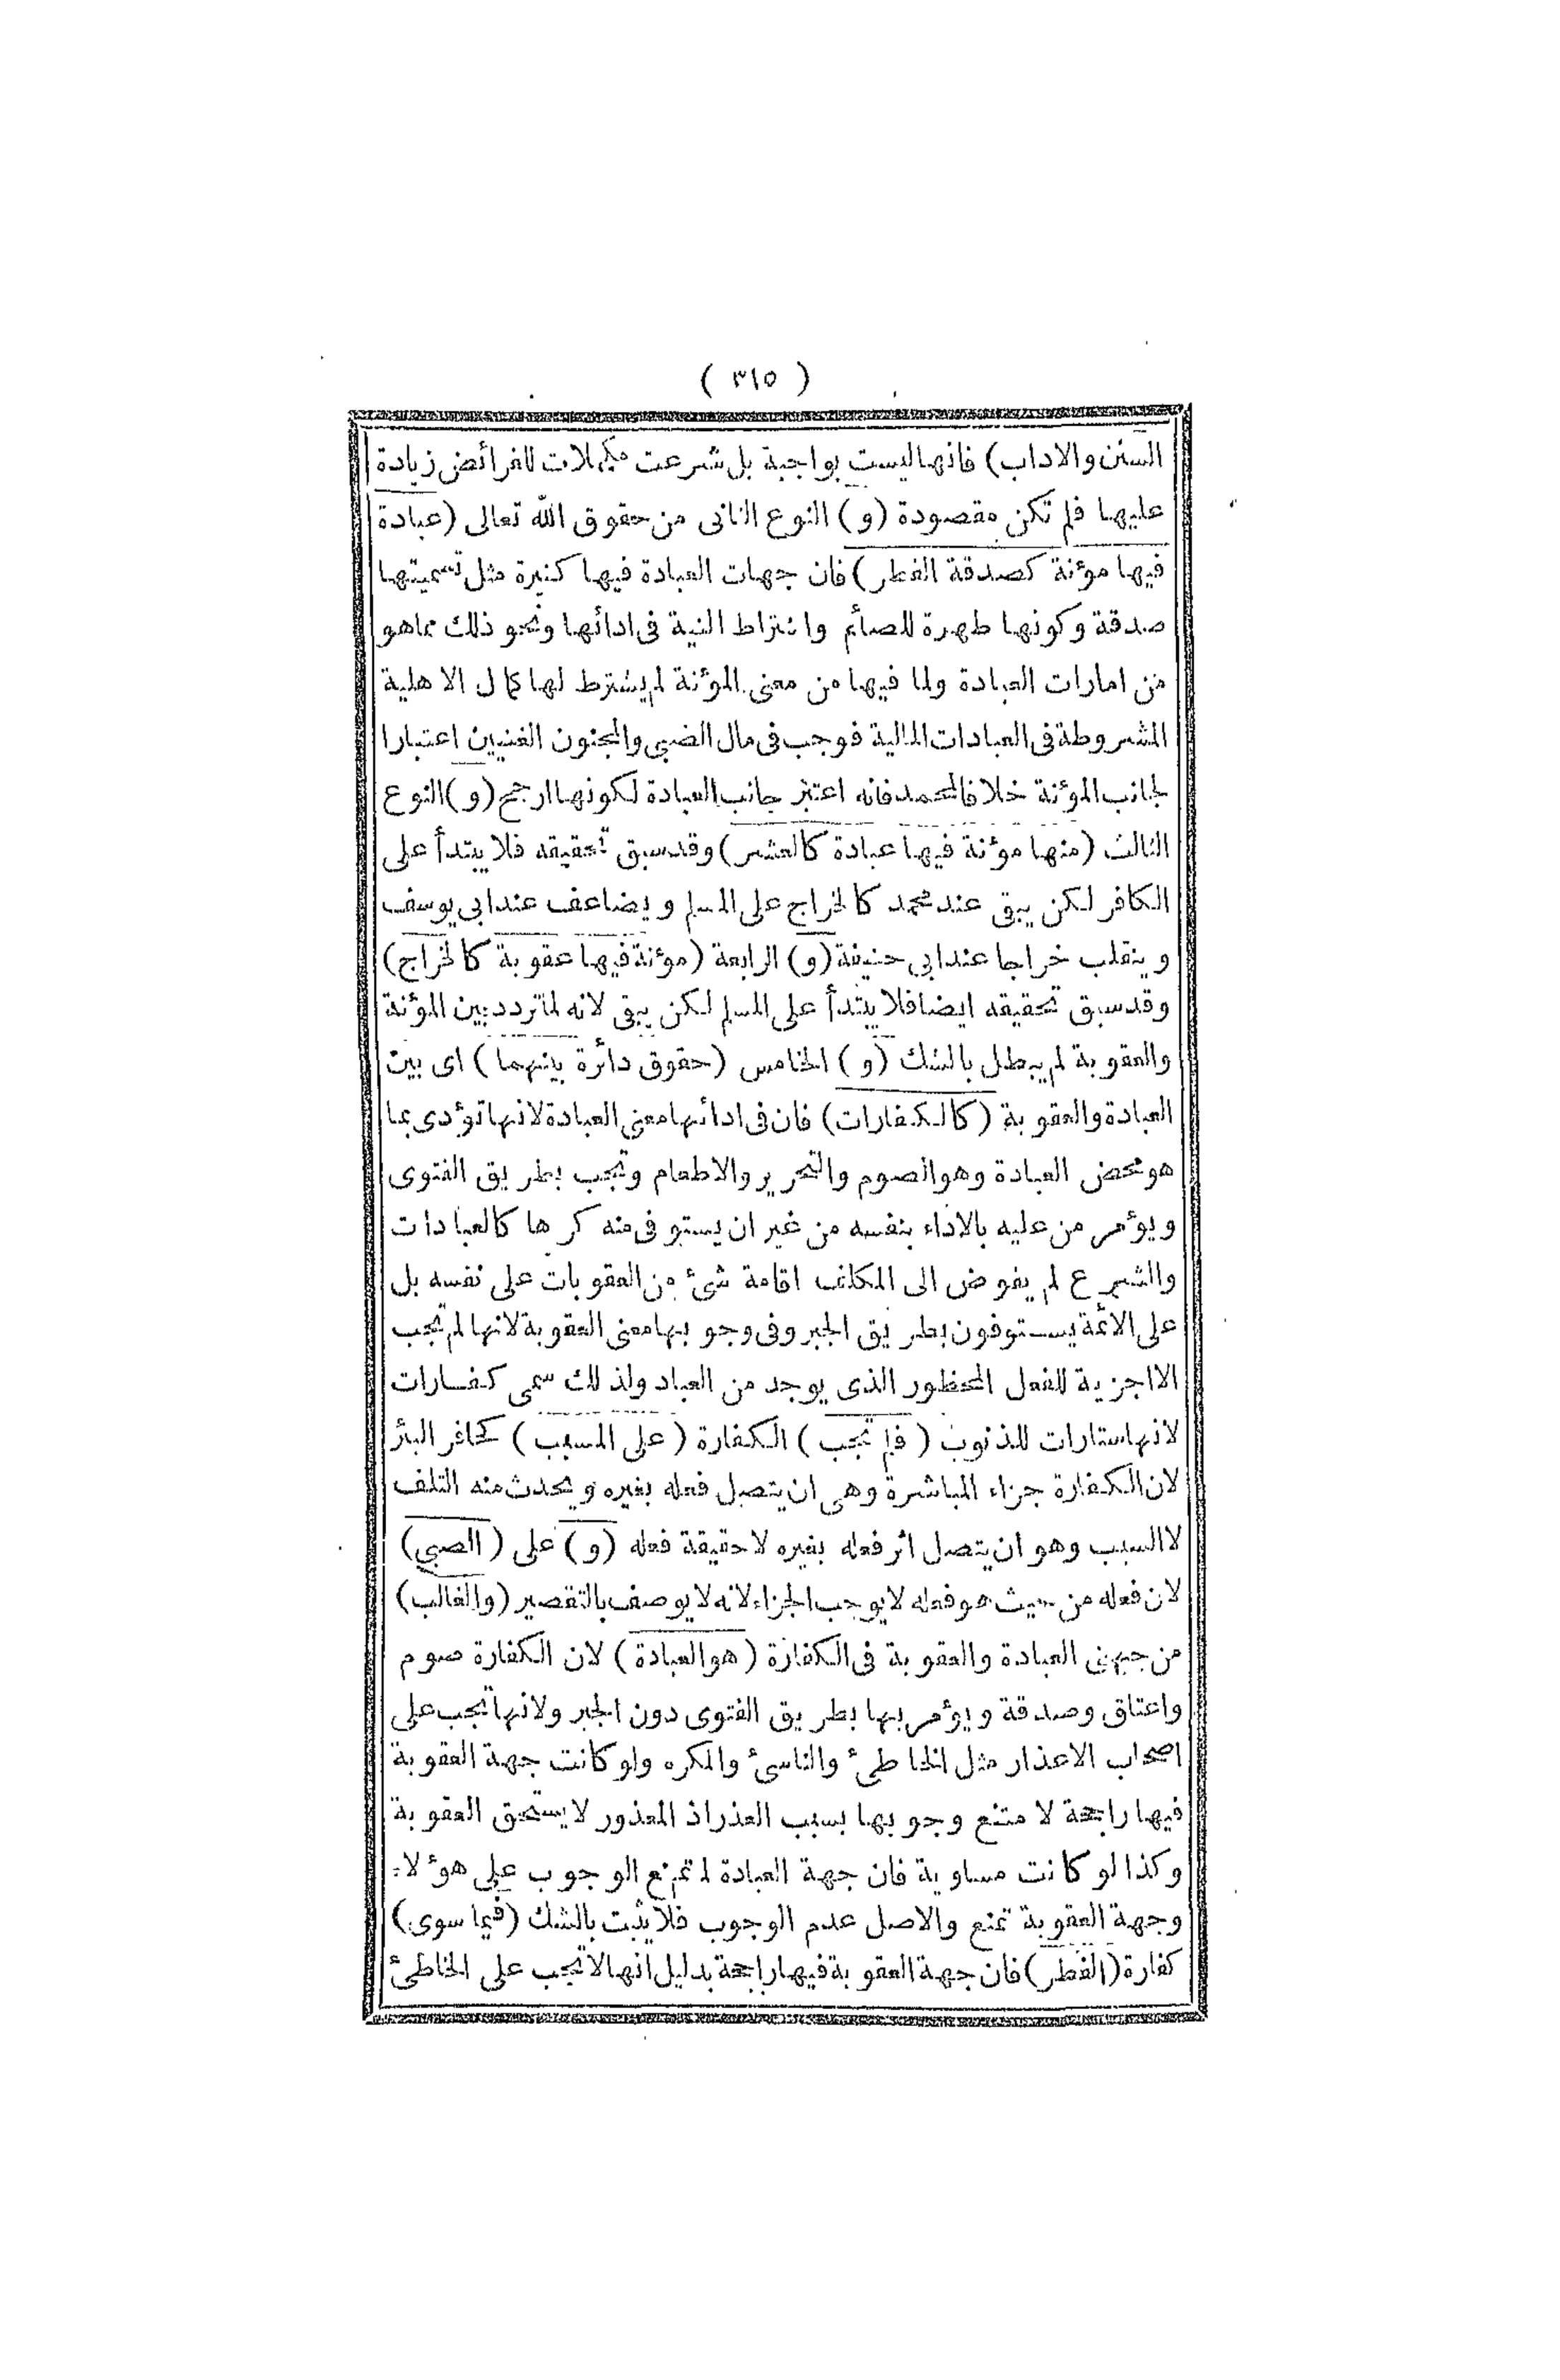 ( ٣١٥ )
السنن والاداب) فانها ليست بواجبة بل شرعت مكملات للفرائض زيادة
عليها فلم تكن مقصودة (و) النوع الثانى من حقوق الله تعالى (عبادة
فيها مؤنة كصدقة الفطر) فان جهات العبادة فيها كثيرة مثل تسميتها
صدقة وكونها طهرة للصائم واشتراط النية فى ادائها ونحو ذلك مماهو
من امارات العبادة ولما فيها من معنى المؤنة لم يشترط لها كمال الاهلية
المشروطة فى العبادات المالية فوجب فى مال الصبى والمجنون الغنيين اعتبارا
لجانب المؤنة خلافا لمحمد فانه اعتبر جانب العبادة لكونها ارجح (و) النوع
الثالث (منها مؤنة فيها عبادة كالعشر) وقد سبق تحقيقه فلا يبتدأ على
الكافر لكن يبقى عند محمد كالخراج على المسلم ويضاعف عند ابى يوسف
وينقلب خراجا عند ابى حنيفة (و) الرابعة (مؤنة فيها عقوبة كالخراج)
وقد سبق تحقيقه ايضا فلا يبتدأ على المسلم لكن يبقى لانه لما تردد بين المؤنة
والعقوبة لم يبطل بالشك (و) الخامس (حقوق دائرة بينهما) اى بين
العبادة والعقوبة (كالكفارات) فان فى ادائها معنى العبادة لانها تؤدى بما
هو محض العبادة وهو الصوم والتحرير والاطعام وتجب بطريق الفتوى
ويؤمر من عليه بالاداء بنفسه من غير ان يستوفى منه كرها كالعبادات
والشرع لم يفوض الى المكلف اقامة شئ من العقوبات على نفسه بل
على الائمة يستوفون بطريق الجبر وفى وجوبها معنى العقوبة لانها لم تجب
الا اجزية للفعل المحظور الذى يوجد من العباد ولذلك سمى كفارات
لانها ستارات للذنوب (فلم تجب) الكفارة (على المسبب) كحافر البئر
لان الكفارة جزاء المباشرة وهى ان يتصل فعله بغيره ويحدث منه التلف
لا السبب وهو ان يتصل اثر فعله بغيره لا حقيقة فعله (و) على (الصبى)
لان فعله من حيث هو فعله لا يوجب الجزاء لانه لا يوصف بالتقصير (والغالب)
من جهتى العبادة والعقوبة فى الكفارة (هو العبادة) لان الكفارة صوم
واعتاق وصدقة ويؤمر بها بطريق الفتوى دون الجبر ولانها تجب على
اصحاب الاعذار مثل الخاطئ والناسئ والمكره ولو كانت جهة العقوبة
فيها راجحة لا متنع وجوبها بسبب العذر اذ المعذور لا يستحق العقوبة
وكذا لو كانت مساوية فان جهة العبادة لم تمنع الوجوب على هؤلاء
وجهة العقوبة تمنع والاصل عدم الوجوب فلا يثبت بالشك (فيما سوى)
كفارة (الفطر) فان جهة العقوبة فيها راجحة بدليل انها لا تجب على الخاطئ